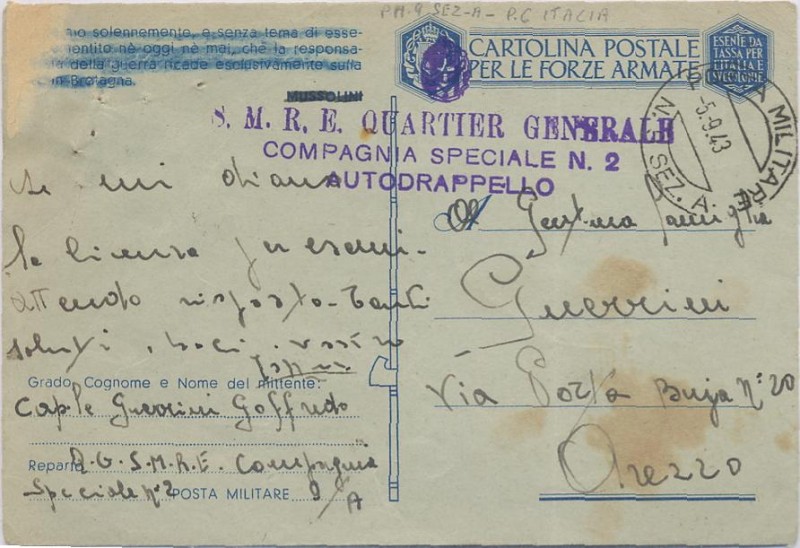 PM. 9 SEZ-A- P.C ITALIA
nio solennemente, e senza tema di esse-
entito nè oggi nè mai, chè la responsa-
della guerra ricade esclusivamente sulla
n Bretagna.
MUSSOLINI
CARTOLINA POSTALE
PER LE FORZE ARMATE
ESENTE DA
TASSA PER
L'ITALIA E
S. M. R. E. QUARTIER GENERALE
COMPAGNIA SPECIALE N. 2
AUTODRAPPELLO
POSTA MILITARE
5.9.43
N. 9 SEZ. A.
Se mi
la licenza
attendo risposta - Tanti
saluti, baci, vostro
Grado, Cognome e Nome del mittente:
Cap.le Guerrini Goffredo
Reparto Q.G.S.M.R.E. Compagnia
Speciale n° 2 POSTA MILITARE 9/A
Al Gent.ma famiglia
Guerrini
Via Porta Buja N° 20
Arezzo